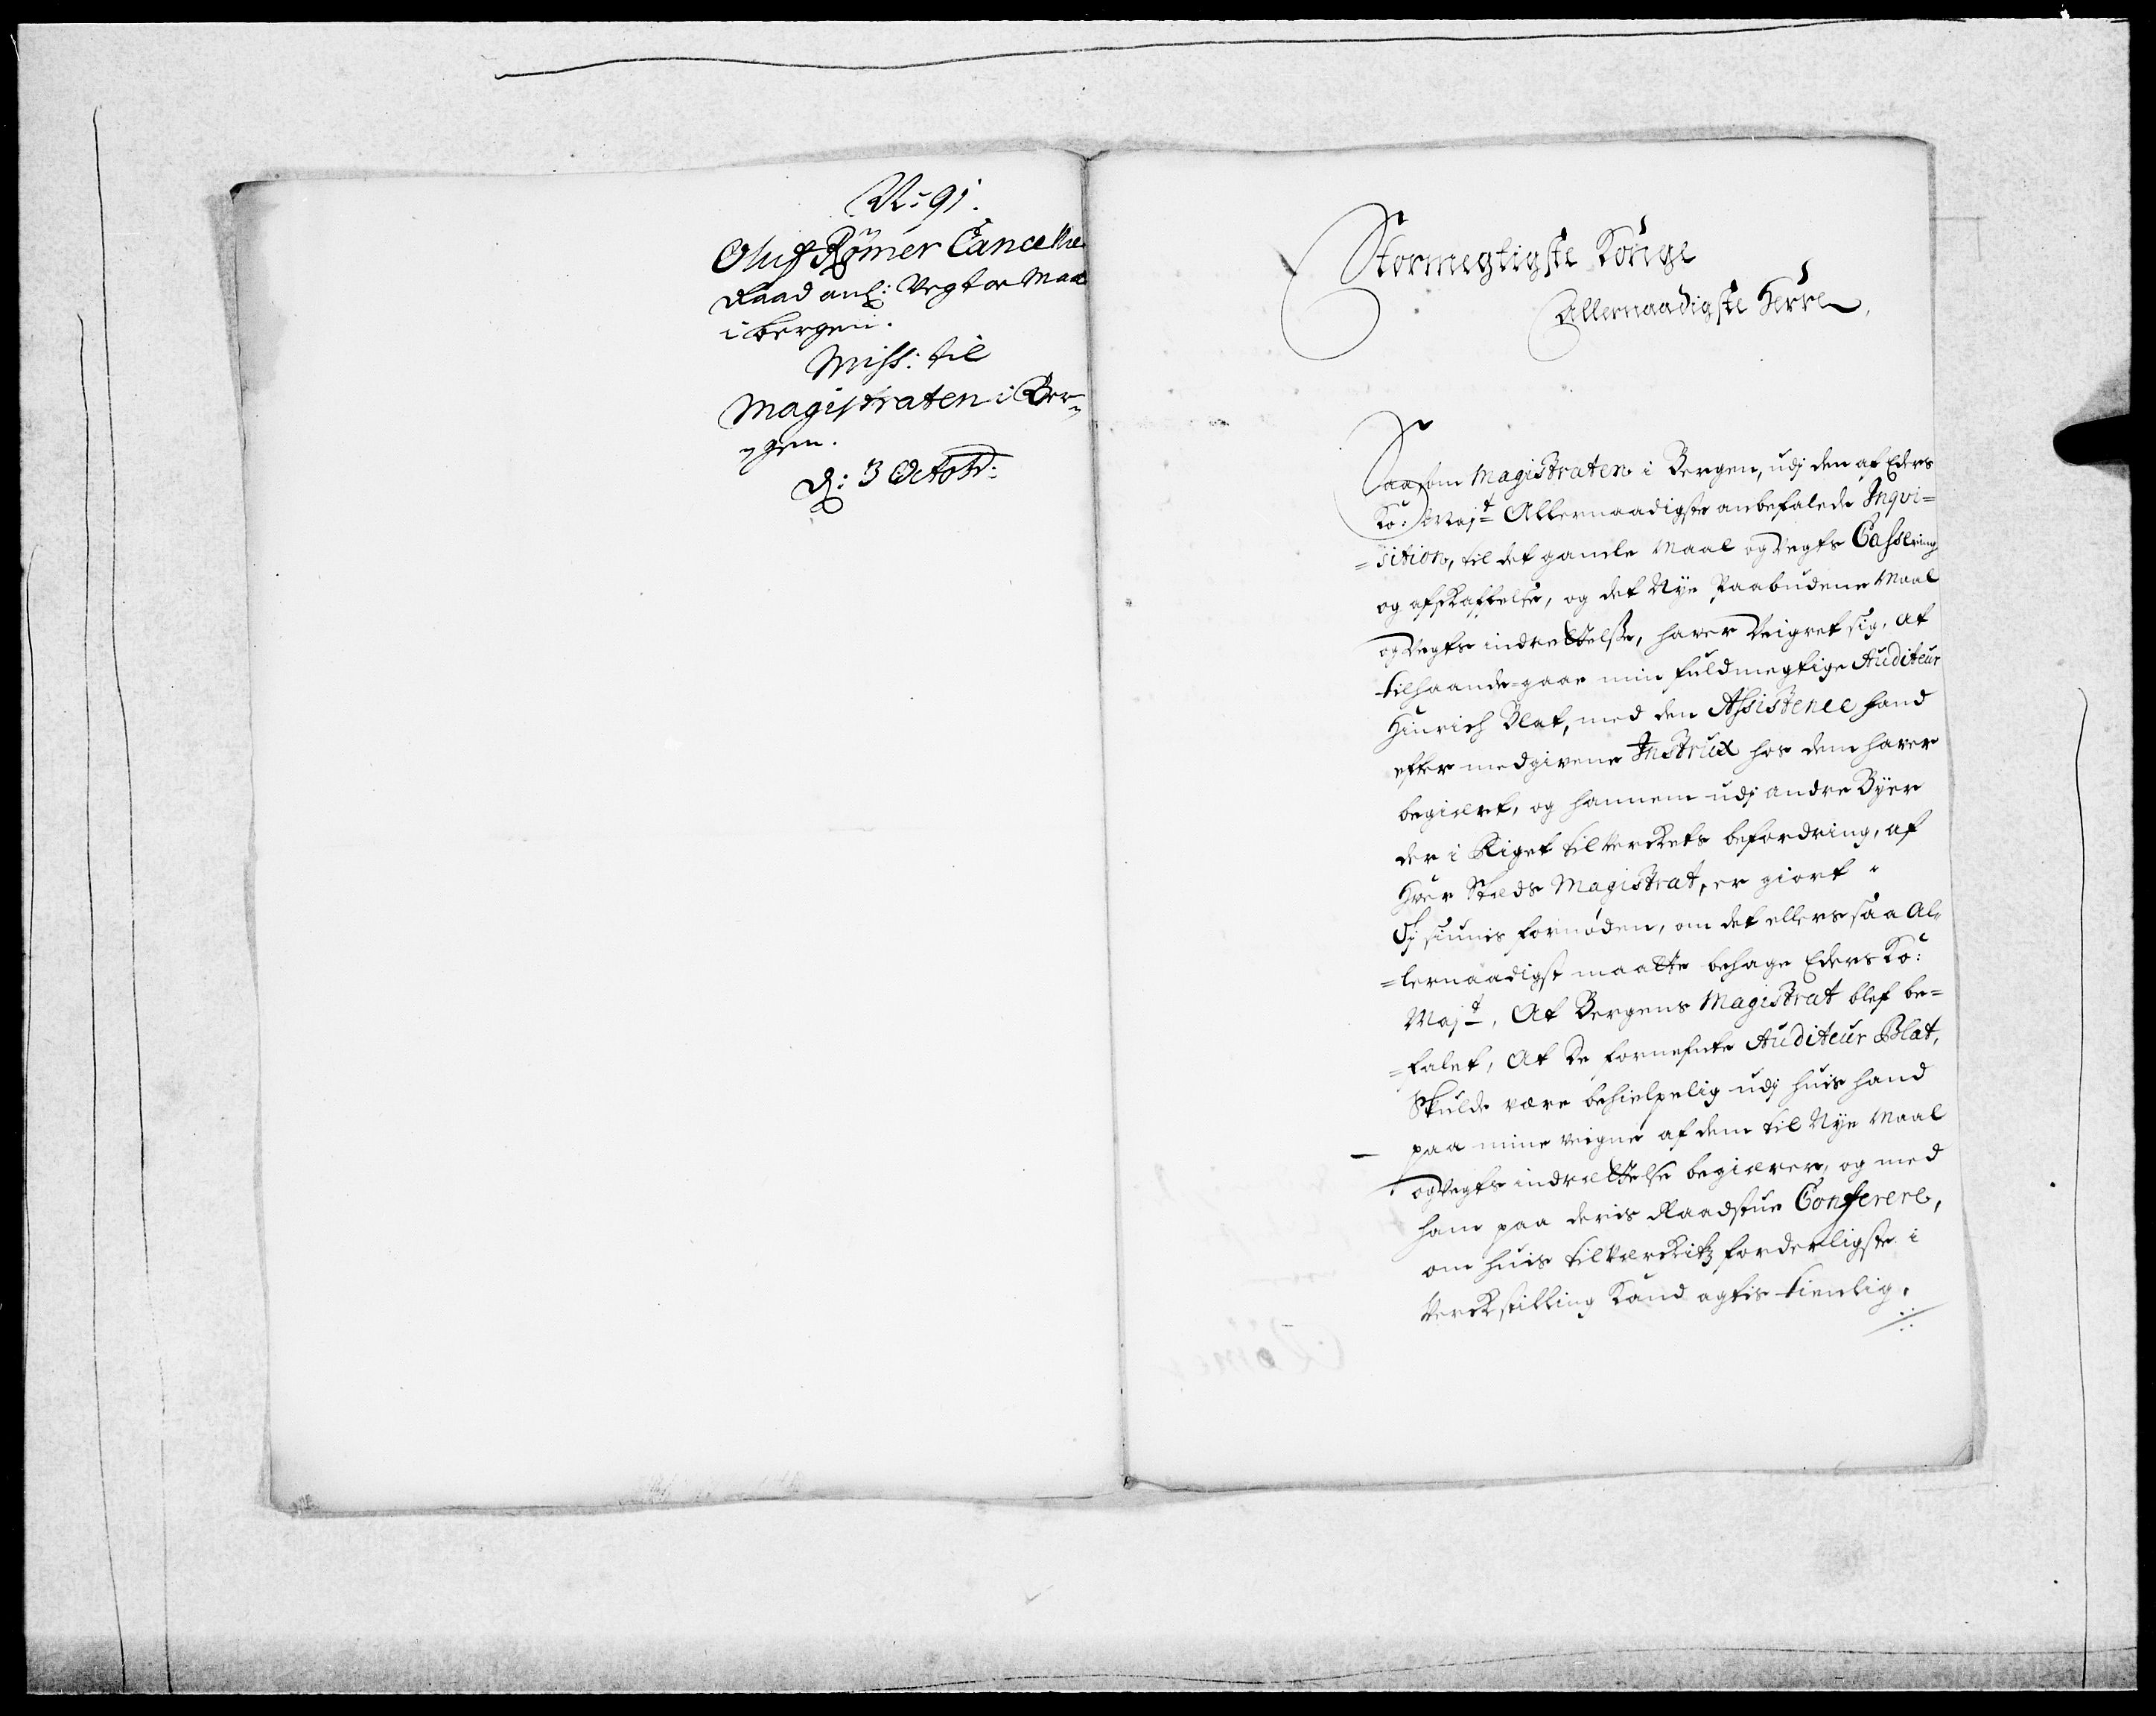 N: 91.
Oluf Rømer Cancellie
Raad anl: Vegt oc Maal
i bergen.
Miss: til
Magistraten i Ber„
„gen.
d: 3 Octobr:
Stormegtigste Konge
Allernaadigste Herre,
Saasom Magistraten i Bergen, udj den af Eders
Ko: Majt Allernaadigste anbefalede Inqvi=
=sition, til det gamle Maal og Vegts Cassering
og afskaffelse, og det Nye Paabudene Maal
og Vegts indrettelse, haver Veigret sig, at
tilhaande-gaae min fuldmegtige Auditeur
Hinrich Blat, med den Assistence hand
efter medgivene Instrux hos dem haver
begiært, og hannem udj andre Byer
der i Riget til Verckets befordring, af
Hver Steds Magistrat, er giort
Sÿ siunis fornøden, om det ellers saa Al„
=lernaadigst maatte behage Eders Ko:
Majt, At Bergens Magistrat blef be=
=falet, At de fornefnte Auditeur Blat,
Skulde være behielpelig udj huis hand
paa mine veigne af dem til Nye Maal
og Vegts indrættelse begiærer, og med
ham paa deris Raadstue Conferere,
om huis til Værckitz forderligste i
Verckstilling kand agtis tienlig.